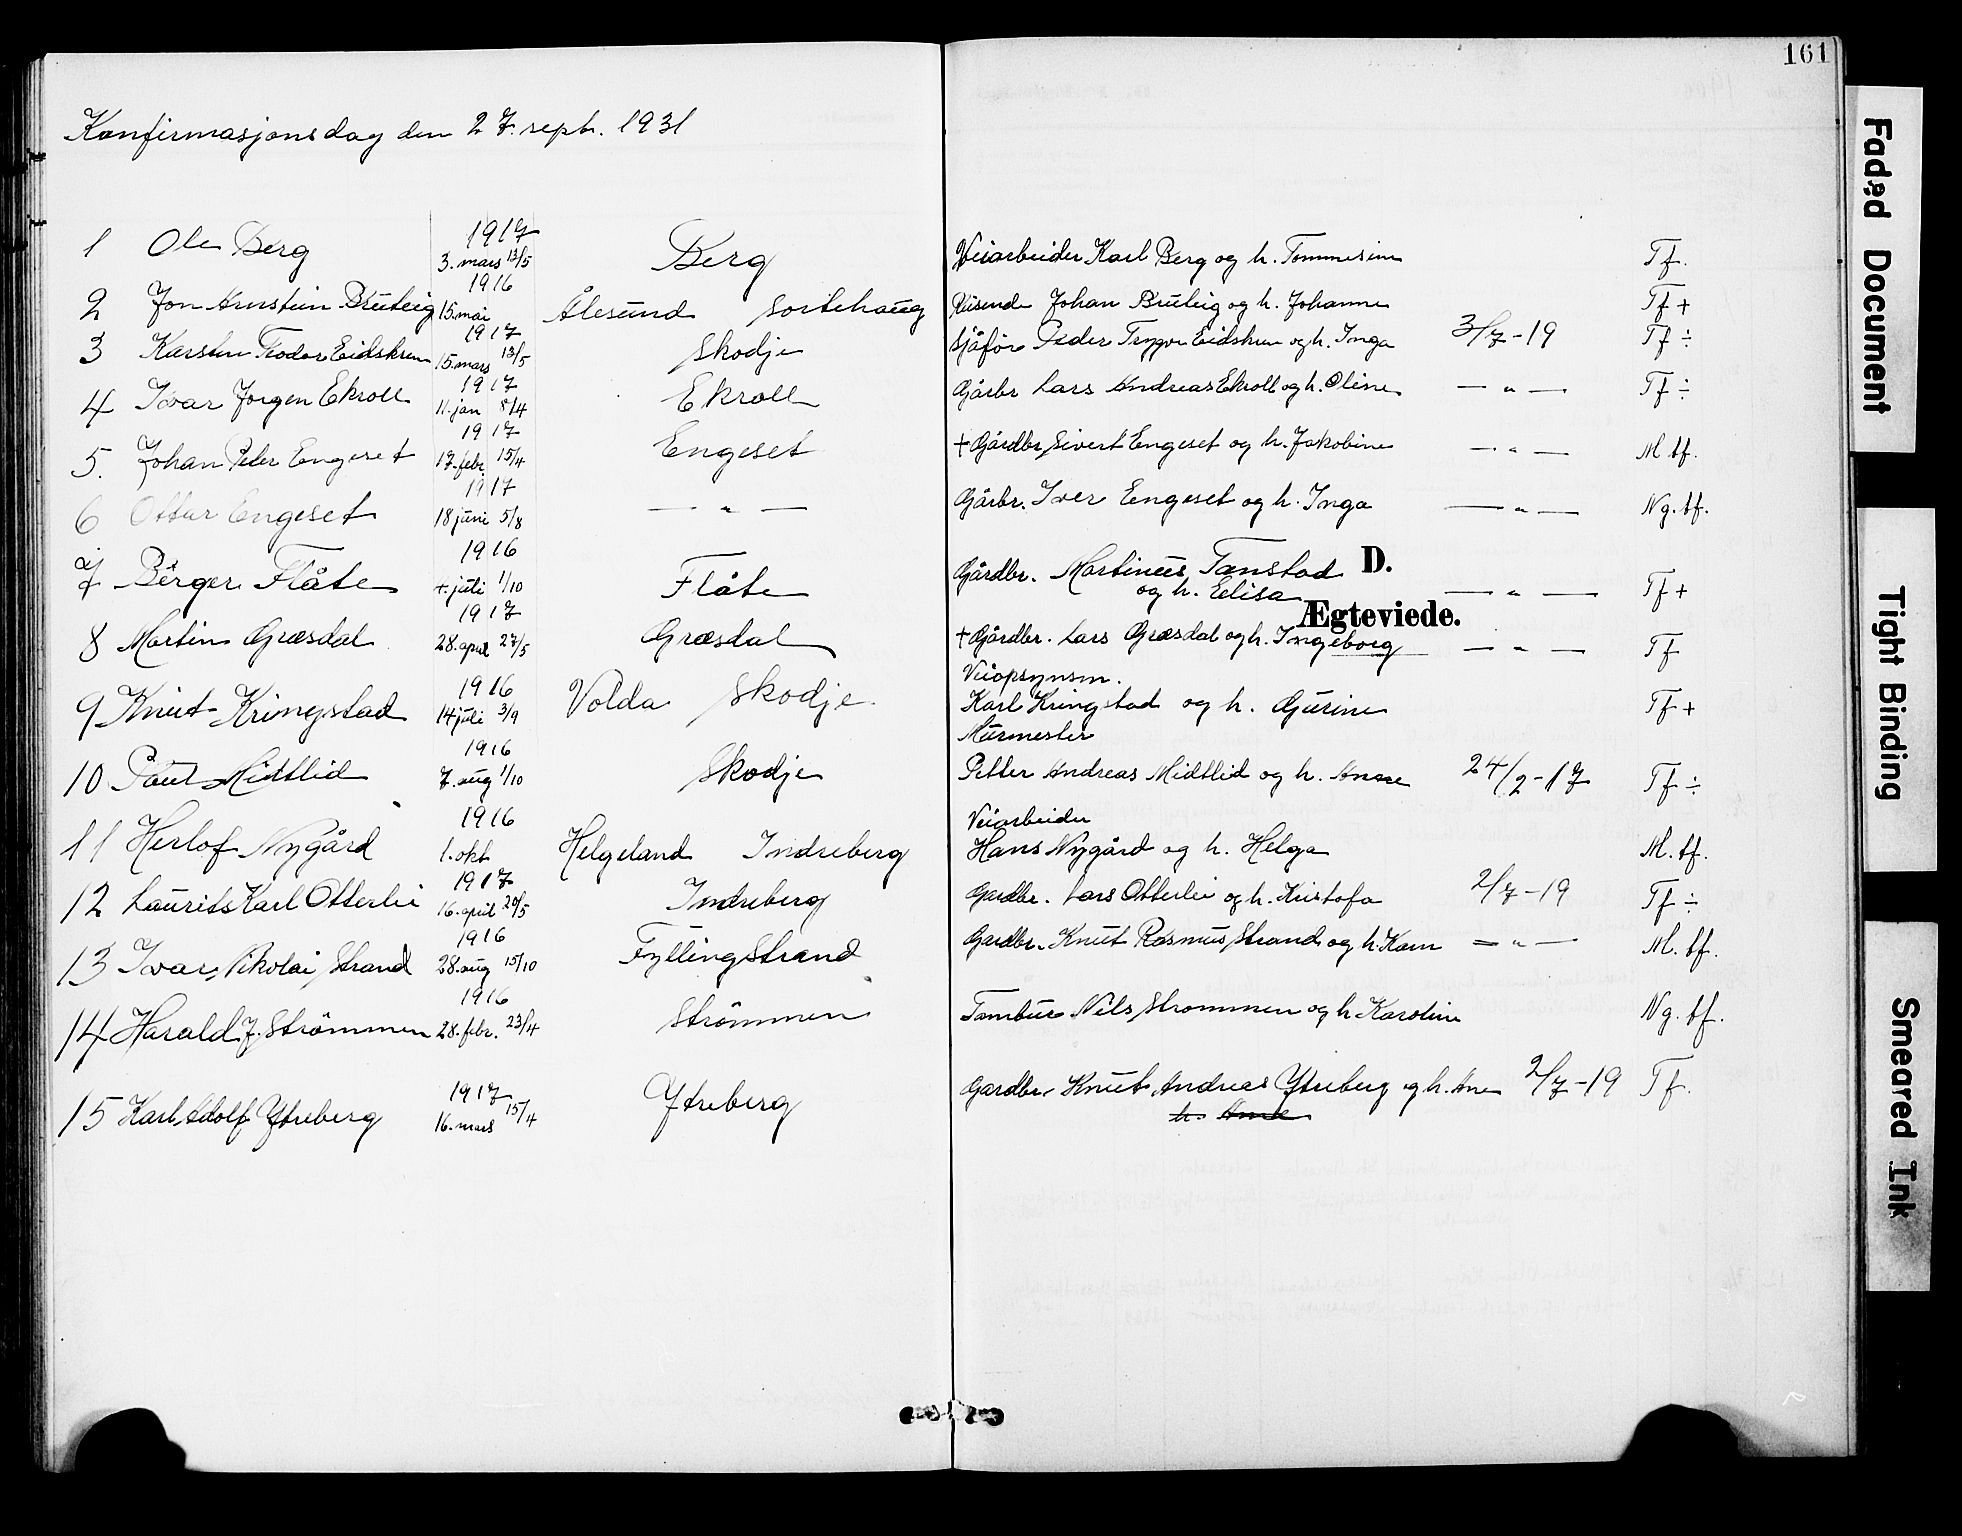 161
Konfirmasjonsdag den 27. sept. 1931
1 Ole Berg 1917 3. mars 13/5 Berg Veiarbeider Karl Berg og h. Tommesine Tf.
2 Jon Arnstein Bruteig 1916 15. mai Ålesund Sortehaug Reisende Johan Bruteig og h. Johanne Tf +
3 Karsten Teodor Eidskrem 1917 15. mars 13/5 Skodje Sjåför Peder Trygve Eidskrem og h. Inga 3/7-19 Tf ÷
4 Ivar Jørgen Ekroll 1917 11. jan 8/4 Ekroll Gårbr Lars Andreas Ekroll og h. Oline — " — Tf ÷
5. Johan Peter Engeset 1917 17. febr. 15/4 Engeset + Gårdbr Sivert Engeset og h. Jakobine — " — M. tf.
6 Ottar Engeset 1917 18 juni 5/8 — " — Gårbr. Iver Engeset og h. Inga — " — Ng. tf.
7 Berger Flåte 1916 4. juli 1/10 Flåte Gårdbr. Martinus Tanstad D.
og h. Elisa — " — Tf +
Ægteviede.
8 Martin Græsdal 1917 28. april 27/5 Græsdal + Gårdbr. Lars Græsdal og h. Ingeborg — " — Tf
Veiopsynsm.
9 Knut Kringstad 1916 14 juli 3/9 Volda Skodje. Karl Kringstad og h. Gurine Tf +
Murmester
10 Paul Midtlid 1916 7. aug 1/10 Skodje Petter Andreas Midtlid og h. Anne 24/2-17 Tf ÷
Veiarbeider
11 Herlof Nygård 1916 1. okt Helgeland Indreberg Hans Nygård og h. Helga M. tf.
12 Laurits Karl Otterlei 1917 16. april 20/5 Indreberg Gardbr. Lars Otterlei og h. Kristofa 2/7-19 Tf ÷
13 Ivar Nikolai Strand 1916 28. aug 15/10 Fyllingstrand Gardbr. Knut Rasmus Strand og h. Karn — " — M. tf.
14 Harald J. Strömmen 1916 28. febr. 23/4 Strömmen Tambur Nils Strommen og h Karoline Ng. tf.
15 Karl Adolf Ytreberg 1917 16. mars 15/4 Ytreberg Gardbr. Knut Andreas Ytreberg og h. Ane 2/7-19 Tf.
h. Anne
Faded Document
Tight Binding
Smeared Ink